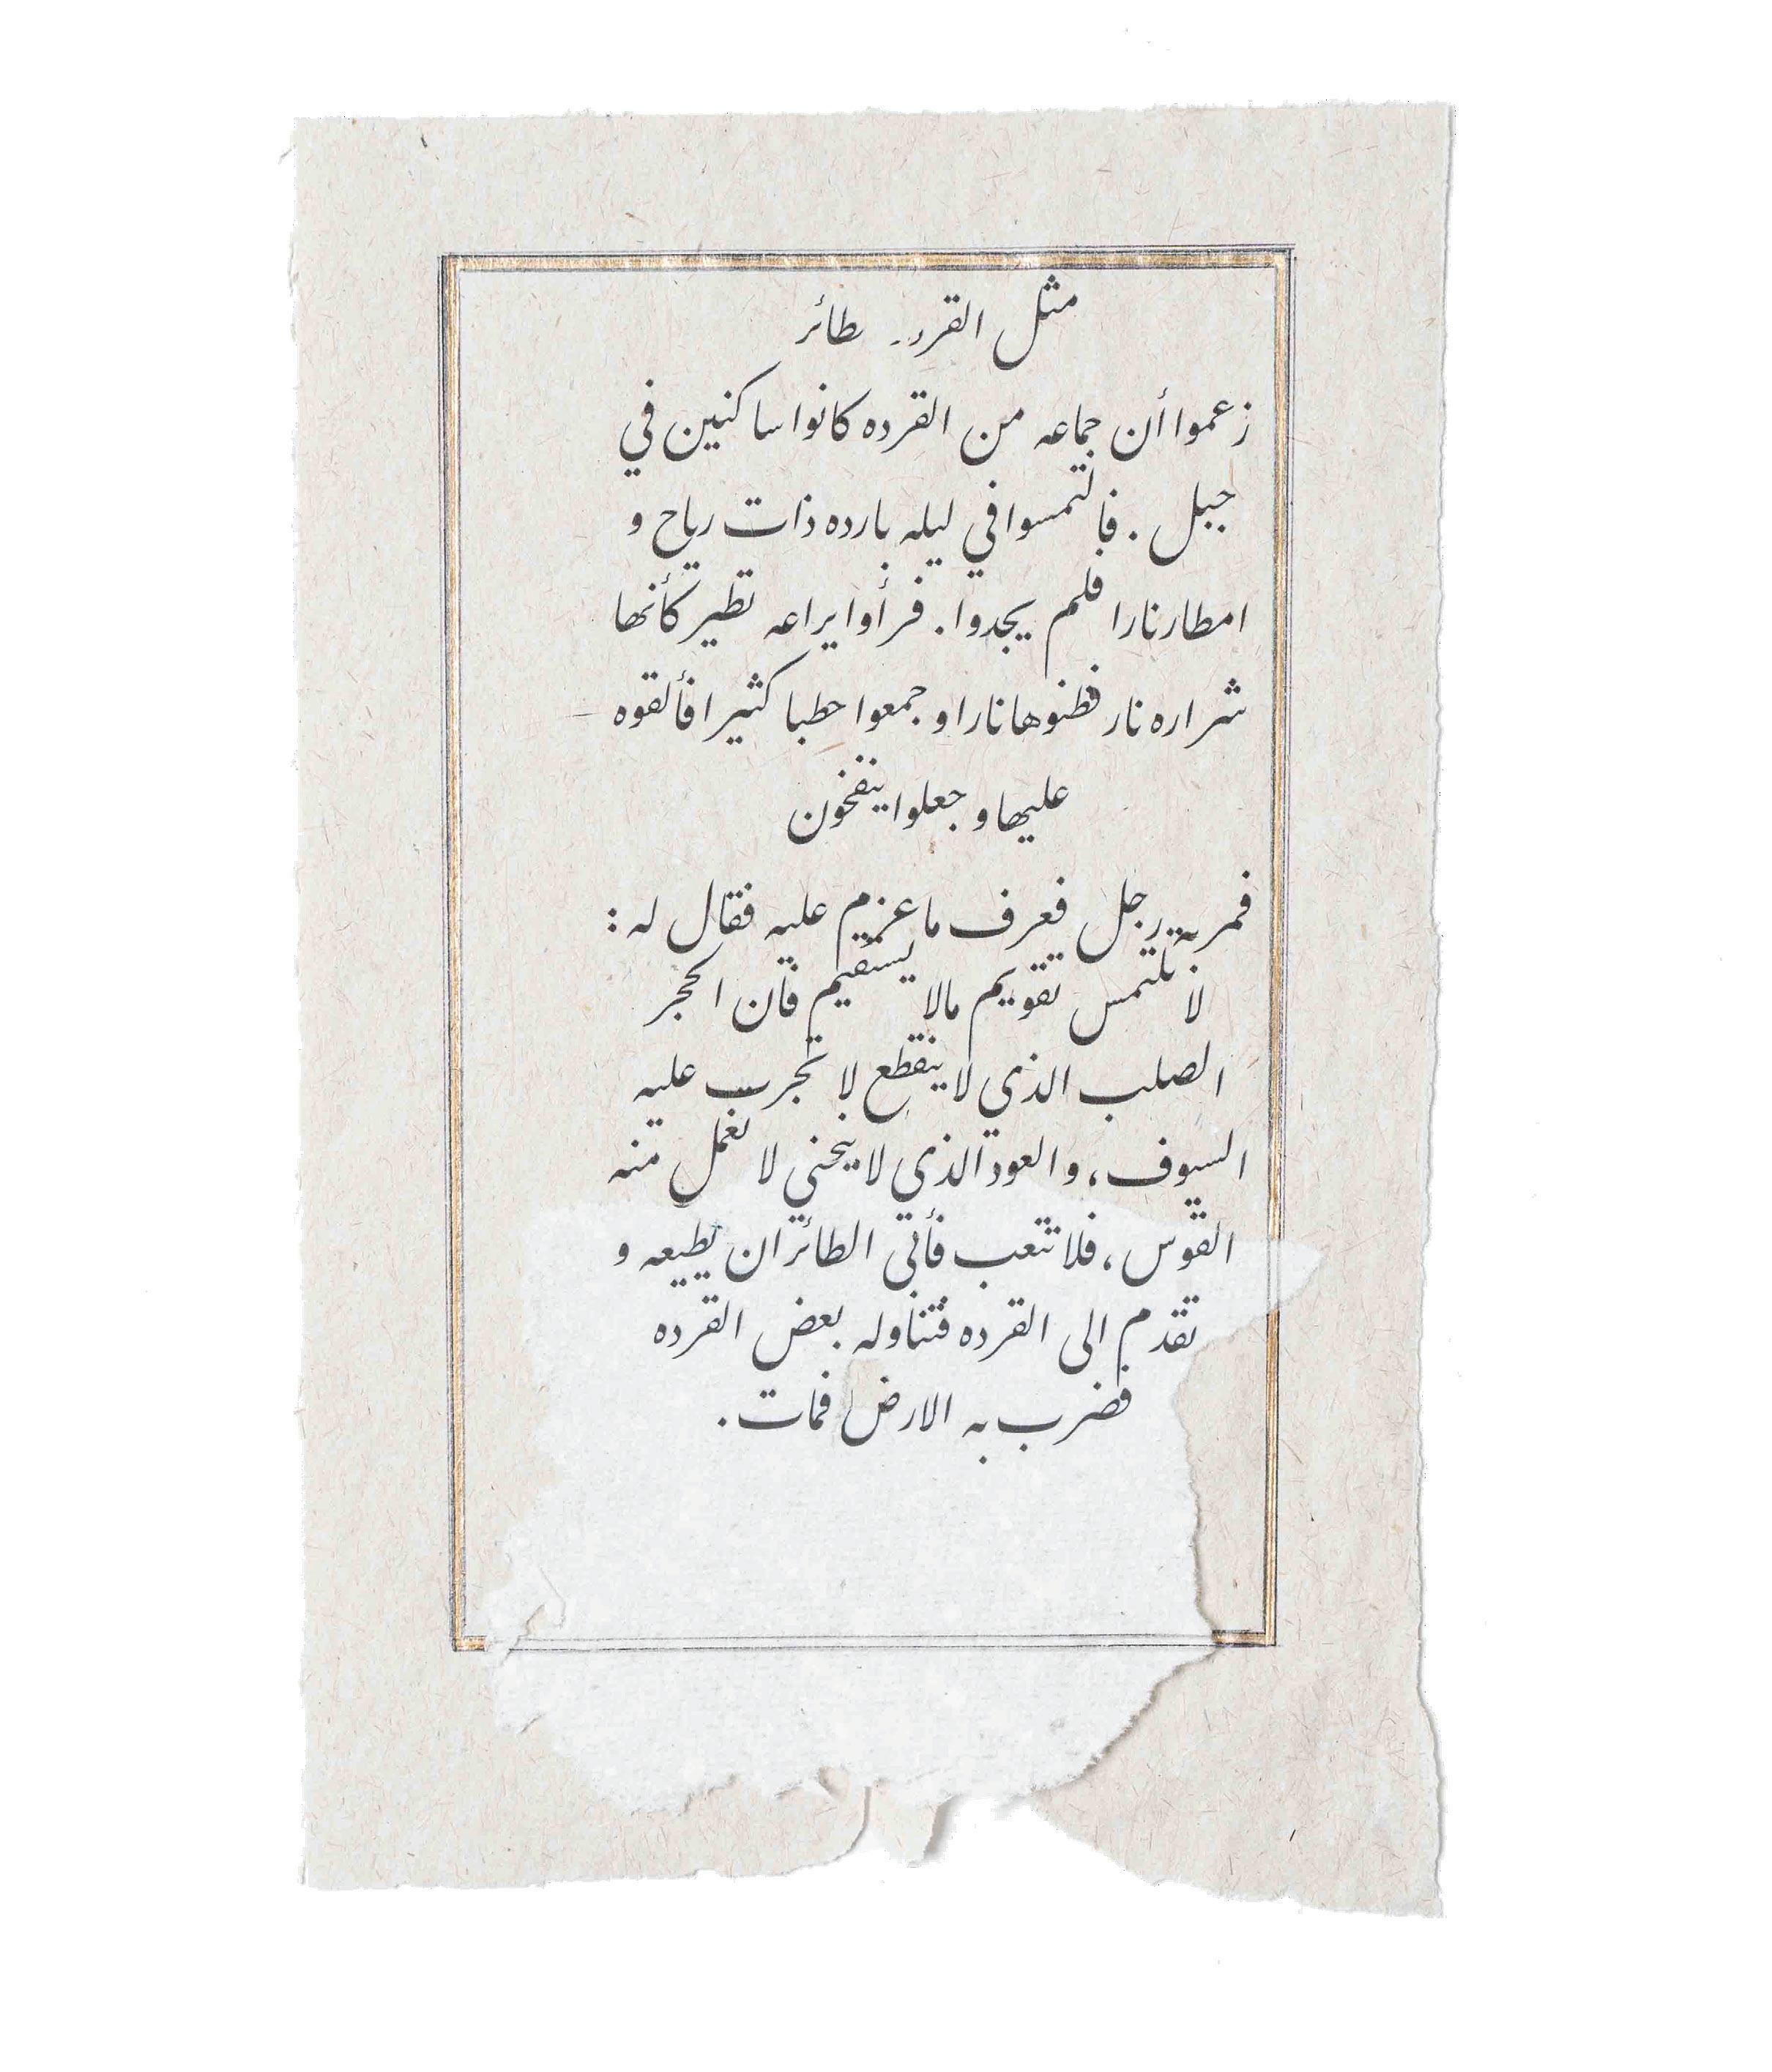 مثل القرد طائر
زعموا أن جماعه من القرده كانوا ساكنين في
جبل . فالتمسوا في ليله بارده ذات رياح و
امطار نارا فلم يجدوا . فرأوا يراعه تطير كأنها
شراره نار فظنوها نارا و جمعوا حطبا كثيرا فألقوه
عليها و جعلوا ينفخون
فمر به رجل فعرف ما عزم عليه فقال له :
لا تلتمس تقويم مالا يستقيم فان الحجر
الصلب الذي لا ينقطع لا تجرب عليه
السيوف ، و العود الذي لا ينحني لا تعمل منه
القوس ، فلا تتعب فأتى الطائر ان يطيعه و
تقدم الى القرده فتناوله بعض القرده
فضرب به الارض فمات .